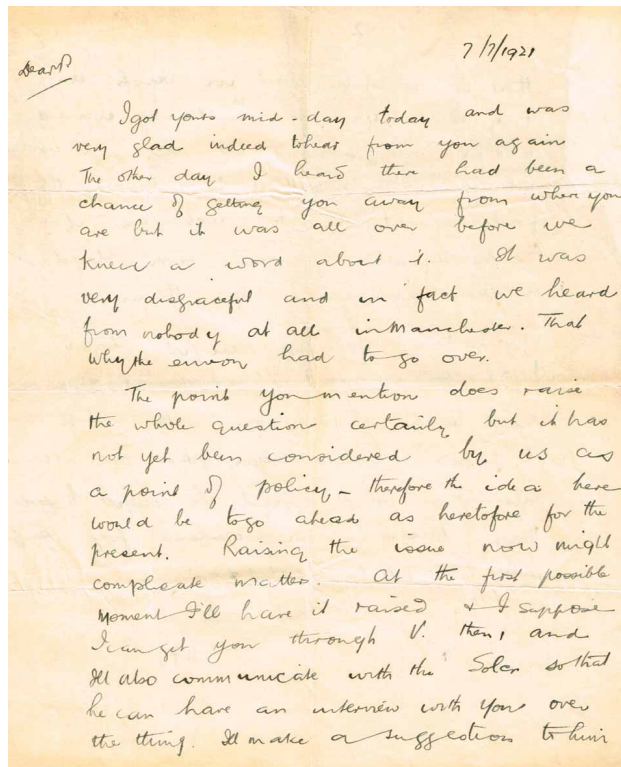 7/7/1921
Dear P
I got yours mid-day today and was
very glad indeed to hear from you again
The other day I heard there had been a
chance of getting you away from where you
are but it was all over before we
knew a word about it. It was
very disgraceful and in fact we heard
from nobody at all in Manchester. That
why the envoy had to go over.
The point you mention does raise
the whole question certainly but it has
not yet been considered by us as
a point of policy - therefore the idea here
would be to go ahead as heretofore for the
present. Raising the issue now might
complicate matter. At the first possible
moment I'll have it raised & I suppose
I can get you through V. then, and
Ill also communicate with the Solcr so that
he can have an interview with you over
the thing. Ill make a suggestion to him